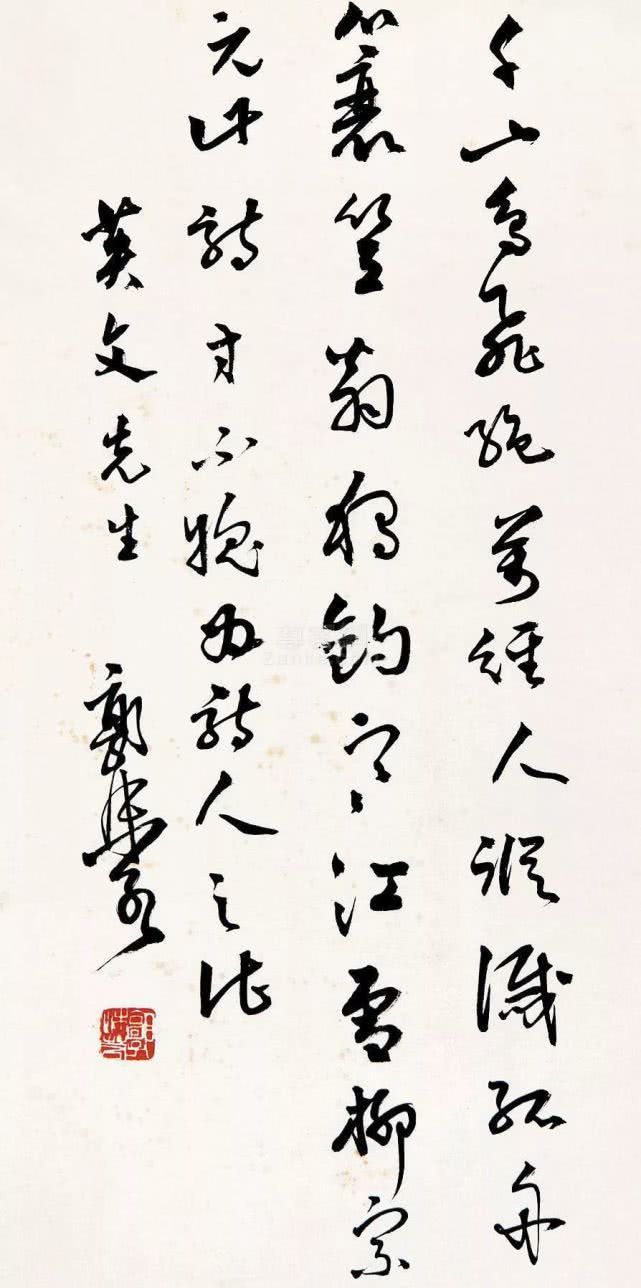 千山鳥飛絕萬徑人蹤滅孤舟
簑笠翁獨釣寒江雪柳宗
元此詩才不愧為詩人之作
英文先生 郭沫若